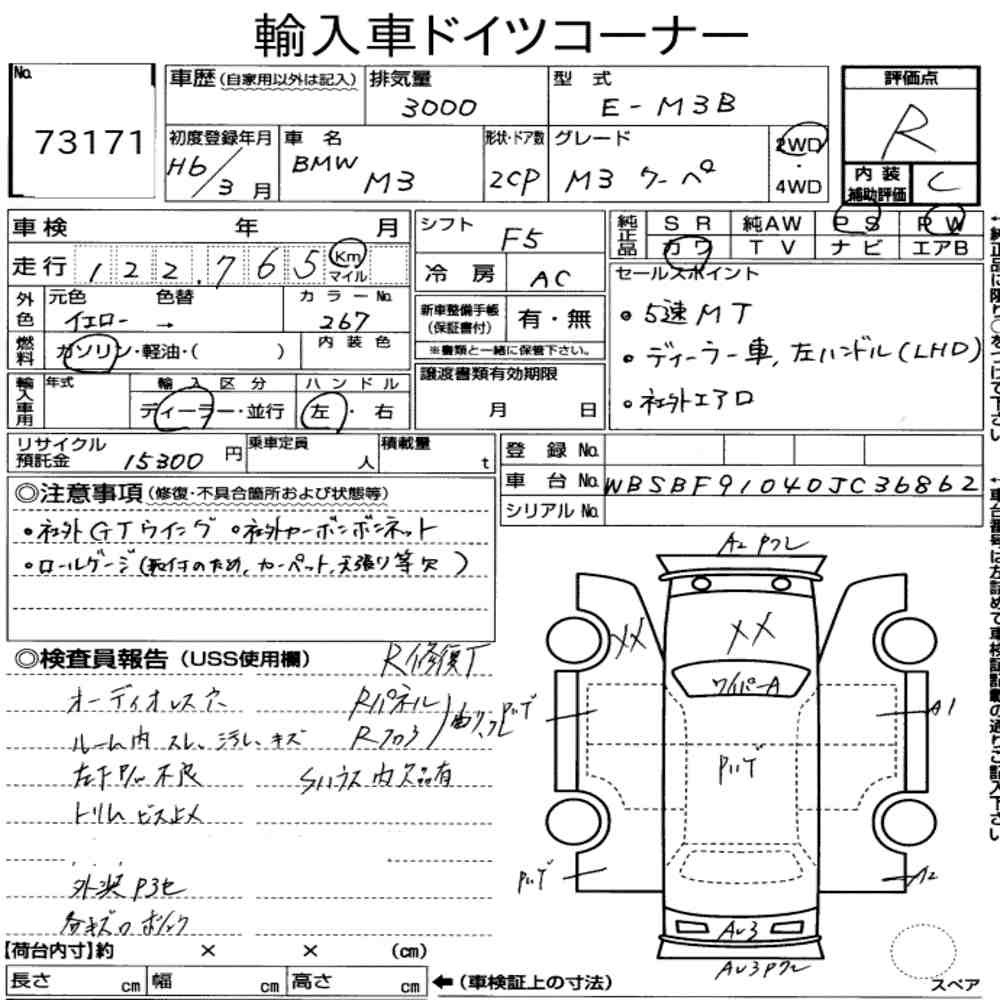 輸入車ドイツコーナー
No.
73171
車歴 (自家用以外は記入)
排気量
3000
型式
E-M3B
評価点
R
初度登録年月
H6/3月
車名
BMW M3
形状・ドア数
2CP
グレード
M3 クーペ
2WD
・
4WD
内装
補助評価
C
車検 年 月
走行 122,765 Km
マイル
シフト
F5
冷房 AC
純正品
SR 純AW PS PW
カワ TV ナビ エアB
セールスポイント
・5速MT
・ディーラー車, 左ハンドル(LHD)
・社外エアロ
外色
元色 色替 カラーNo.
イエロー → 267
新車整備手帳
(保証書付)
有・無
※書類と一緒に保管下さい。
燃料
ガソリン・軽油・( )
内装色
譲渡書類有効期限
月 日
輸入車用
年式
輸入区分
ディーラー・並行
ハンドル
左・右
リサイクル
預託金 15300 円
乗車定員
人
積載量
t
登録No.
車台No. WBSBF91040JC36862
シリアルNo.
◎注意事項 (修復・不具合箇所および状態等)
・社外GTウイング ・社外カーボンボンネット
・ロールゲージ(取付のため, カーペット, 天張り等欠)
◎検査員報告 (USS使用欄)
R修復T
オーディオレス穴
Rパネル
ルーム内 スレ、汚れ、キズ
Rフロア
曲り、凹、PハゲT
左ドアP/W不良
Sハウス内欠品有
トリム ビス止メ
外装 P3セ
各キズ
A2 Pワレ
XX
XX
ワイパーA
A1
PハゲT
PハゲT
A2
AU3
AU3Pワレ
【荷台内寸】約 × × (cm)
長さ cm 幅 cm 高さ cm
←(車検証上の寸法)
スペア
←純正品に限り○をつけて下さい
←車台番号は左詰めで車検証記載の通りご記入下さい